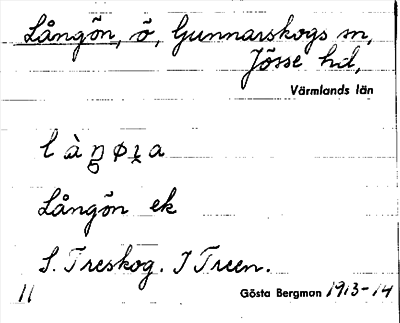 Långön, ö, Gunnarskogs sn,
Jösse hd,
Värmlands län
Långön ek
S. Treskog. I Treen.
11 Gösta Bergman 1913-14